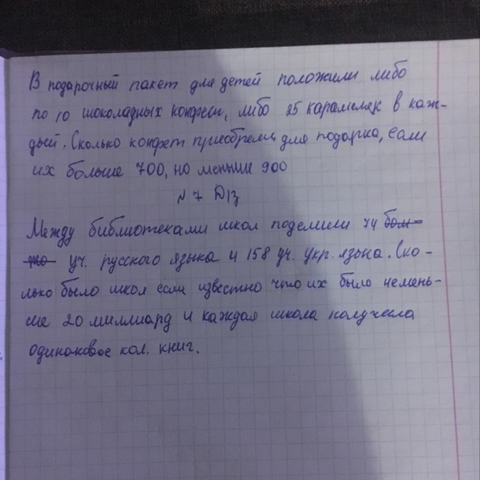 В подарочный пакет для детей положили либо
по 10 шоколадных конфет, либо 25 карамелек в каж-
дый. Сколько конфет приобрели для подарка, если
их больше 700, но меньше 900
№7 Д/з
Между библиотеками школ поделили 74
уч. русского языка и 158 уч. укр. языка. Ско-
лько было школ если известно что их было немень-
ше 20 миллиард и каждая школа получила
одинаковое кол. книг.